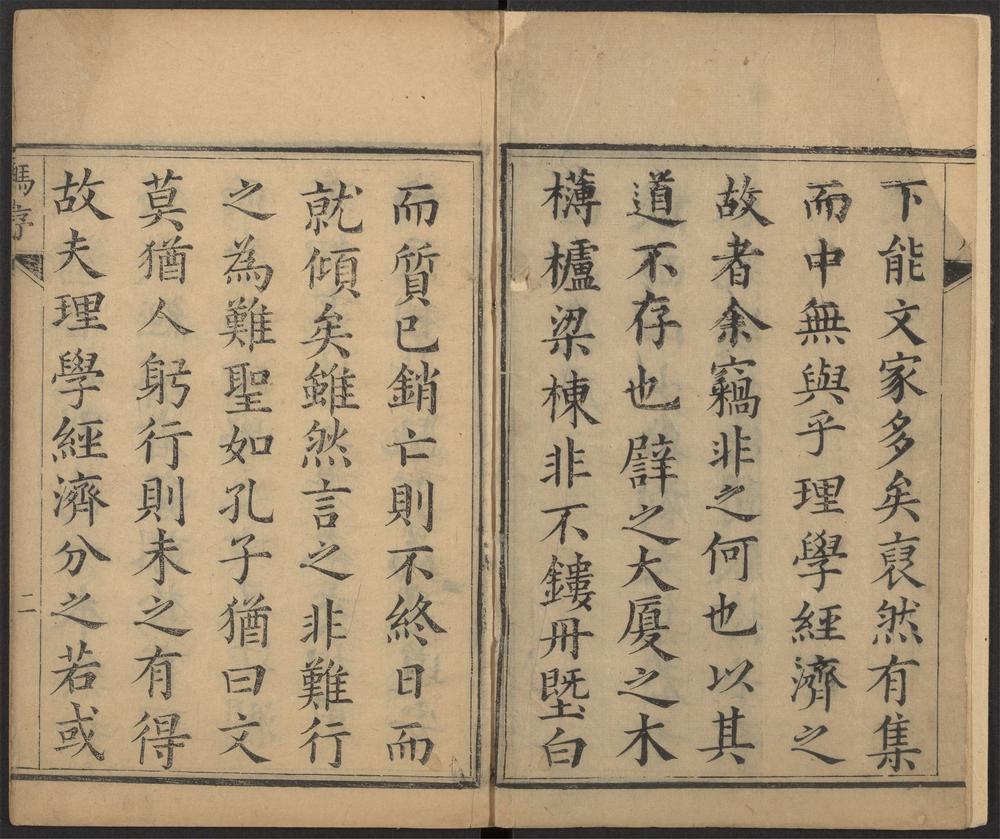 下能文家多矣裒然有集
而中無與乎理學經濟之
故者余竊非之何也以其
道不存也辟之大廈之木
欂櫨梁棟非不鏤丹墍白
而質已銷亡則不終日而
就傾矣雖然言之非難行
之為難聖如孔子猶曰文
莫猶人躬行則未之有得
故夫理學經濟分之若或
馮序
二